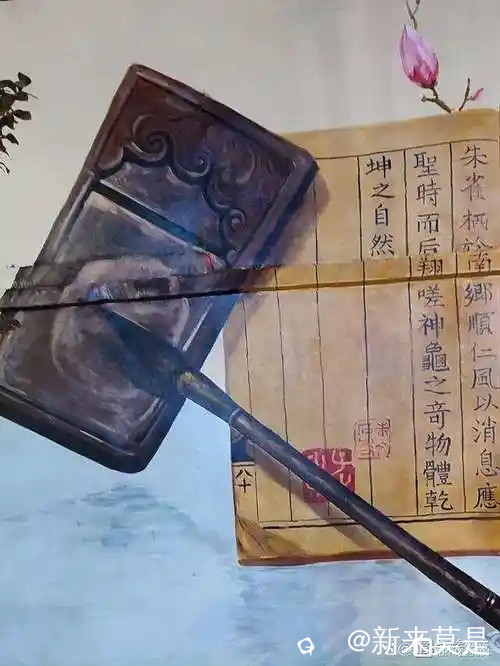 朱雀栖於南鄉順仁風以消息應
聖時而后翔嗟神龜之奇物體乾
坤之自然
八十
@新来莫是